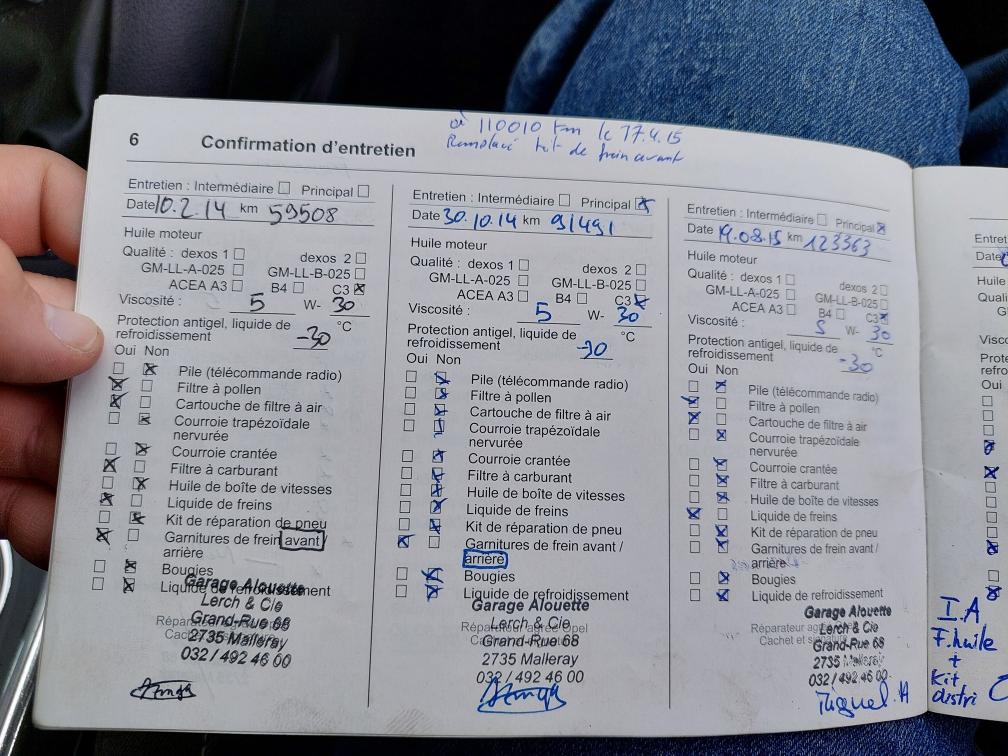 à 110010 km le 17.4.15
Remplacé kit de frein avant
6 Confirmation d'entretien
Entretien : Intermédiaire Principal
Date 10.2.14 km 59508
Huile moteur
Qualité : dexos 1 dexos 2
GM-LL-A-025 GM-LL-B-025
ACEA A3 B4 C3
Viscosité : 5 W- 30
Protection antigel, liquide de refroidissement -30 °C
Oui Non
Pile (télécommande radio)
Filtre à pollen
Cartouche de filtre à air
Courroie trapézoïdale
nervurée
Courroie crantée
Filtre à carburant
Huile de boîte de vitesses
Liquide de freins
Kit de réparation de pneu
Garnitures de frein avant /
arrière
Bougies
Liquide de refroidissement
Garage Alouette
Lerch & Cie
Grand-Rue 68
2735 Malleray
032 / 492 46 00
Entretien : Intermédiaire Principal
Date 30.10.14 km 91491
Huile moteur
Qualité : dexos 1 dexos 2
GM-LL-A-025 GM-LL-B-025
ACEA A3 B4 C3
Viscosité : 5 W- 30
Protection antigel, liquide de
refroidissement -30 °C
Oui Non
Pile (télécommande radio)
Filtre à pollen
Cartouche de filtre à air
Courroie trapézoïdale
nervurée
Courroie crantée
Filtre à carburant
Huile de boîte de vitesses
Liquide de freins
Kit de réparation de pneu
Garnitures de frein avant /
arrière
Bougies
Liquide de refroidissement
Garage Alouette
Réparateur agréé Opel
Lerch & Cie
Grand-Rue 68
2735 Malleray
032 / 492 46 00
Entretien : Intermédiaire Principal
Date 19.08.15 km 123363
Huile moteur
Qualité : dexos 1 dexos 2
GM-LL-A-025 GM-LL-B-025
ACEA A3 B4 C3
Viscosité : 5 W- 30
Protection antigel, liquide de
refroidissement -30 °C
Oui Non
Pile (télécommande radio)
Filtre à pollen
Cartouche de filtre à air
Courroie trapézoïdale
nervurée
Courroie crantée
Filtre à carburant
Huile de boîte de vitesses
Liquide de freins
Kit de réparation de pneu
Garnitures de frein avant /
arrière
Bougies
Liquide de refroidissement
Garage Alouette
Lerch & Cie
Grand-Rue 68
2735 Malleray
032 / 492 46 00
Miguel.A
I.A
F.huile
+
Kit
distri